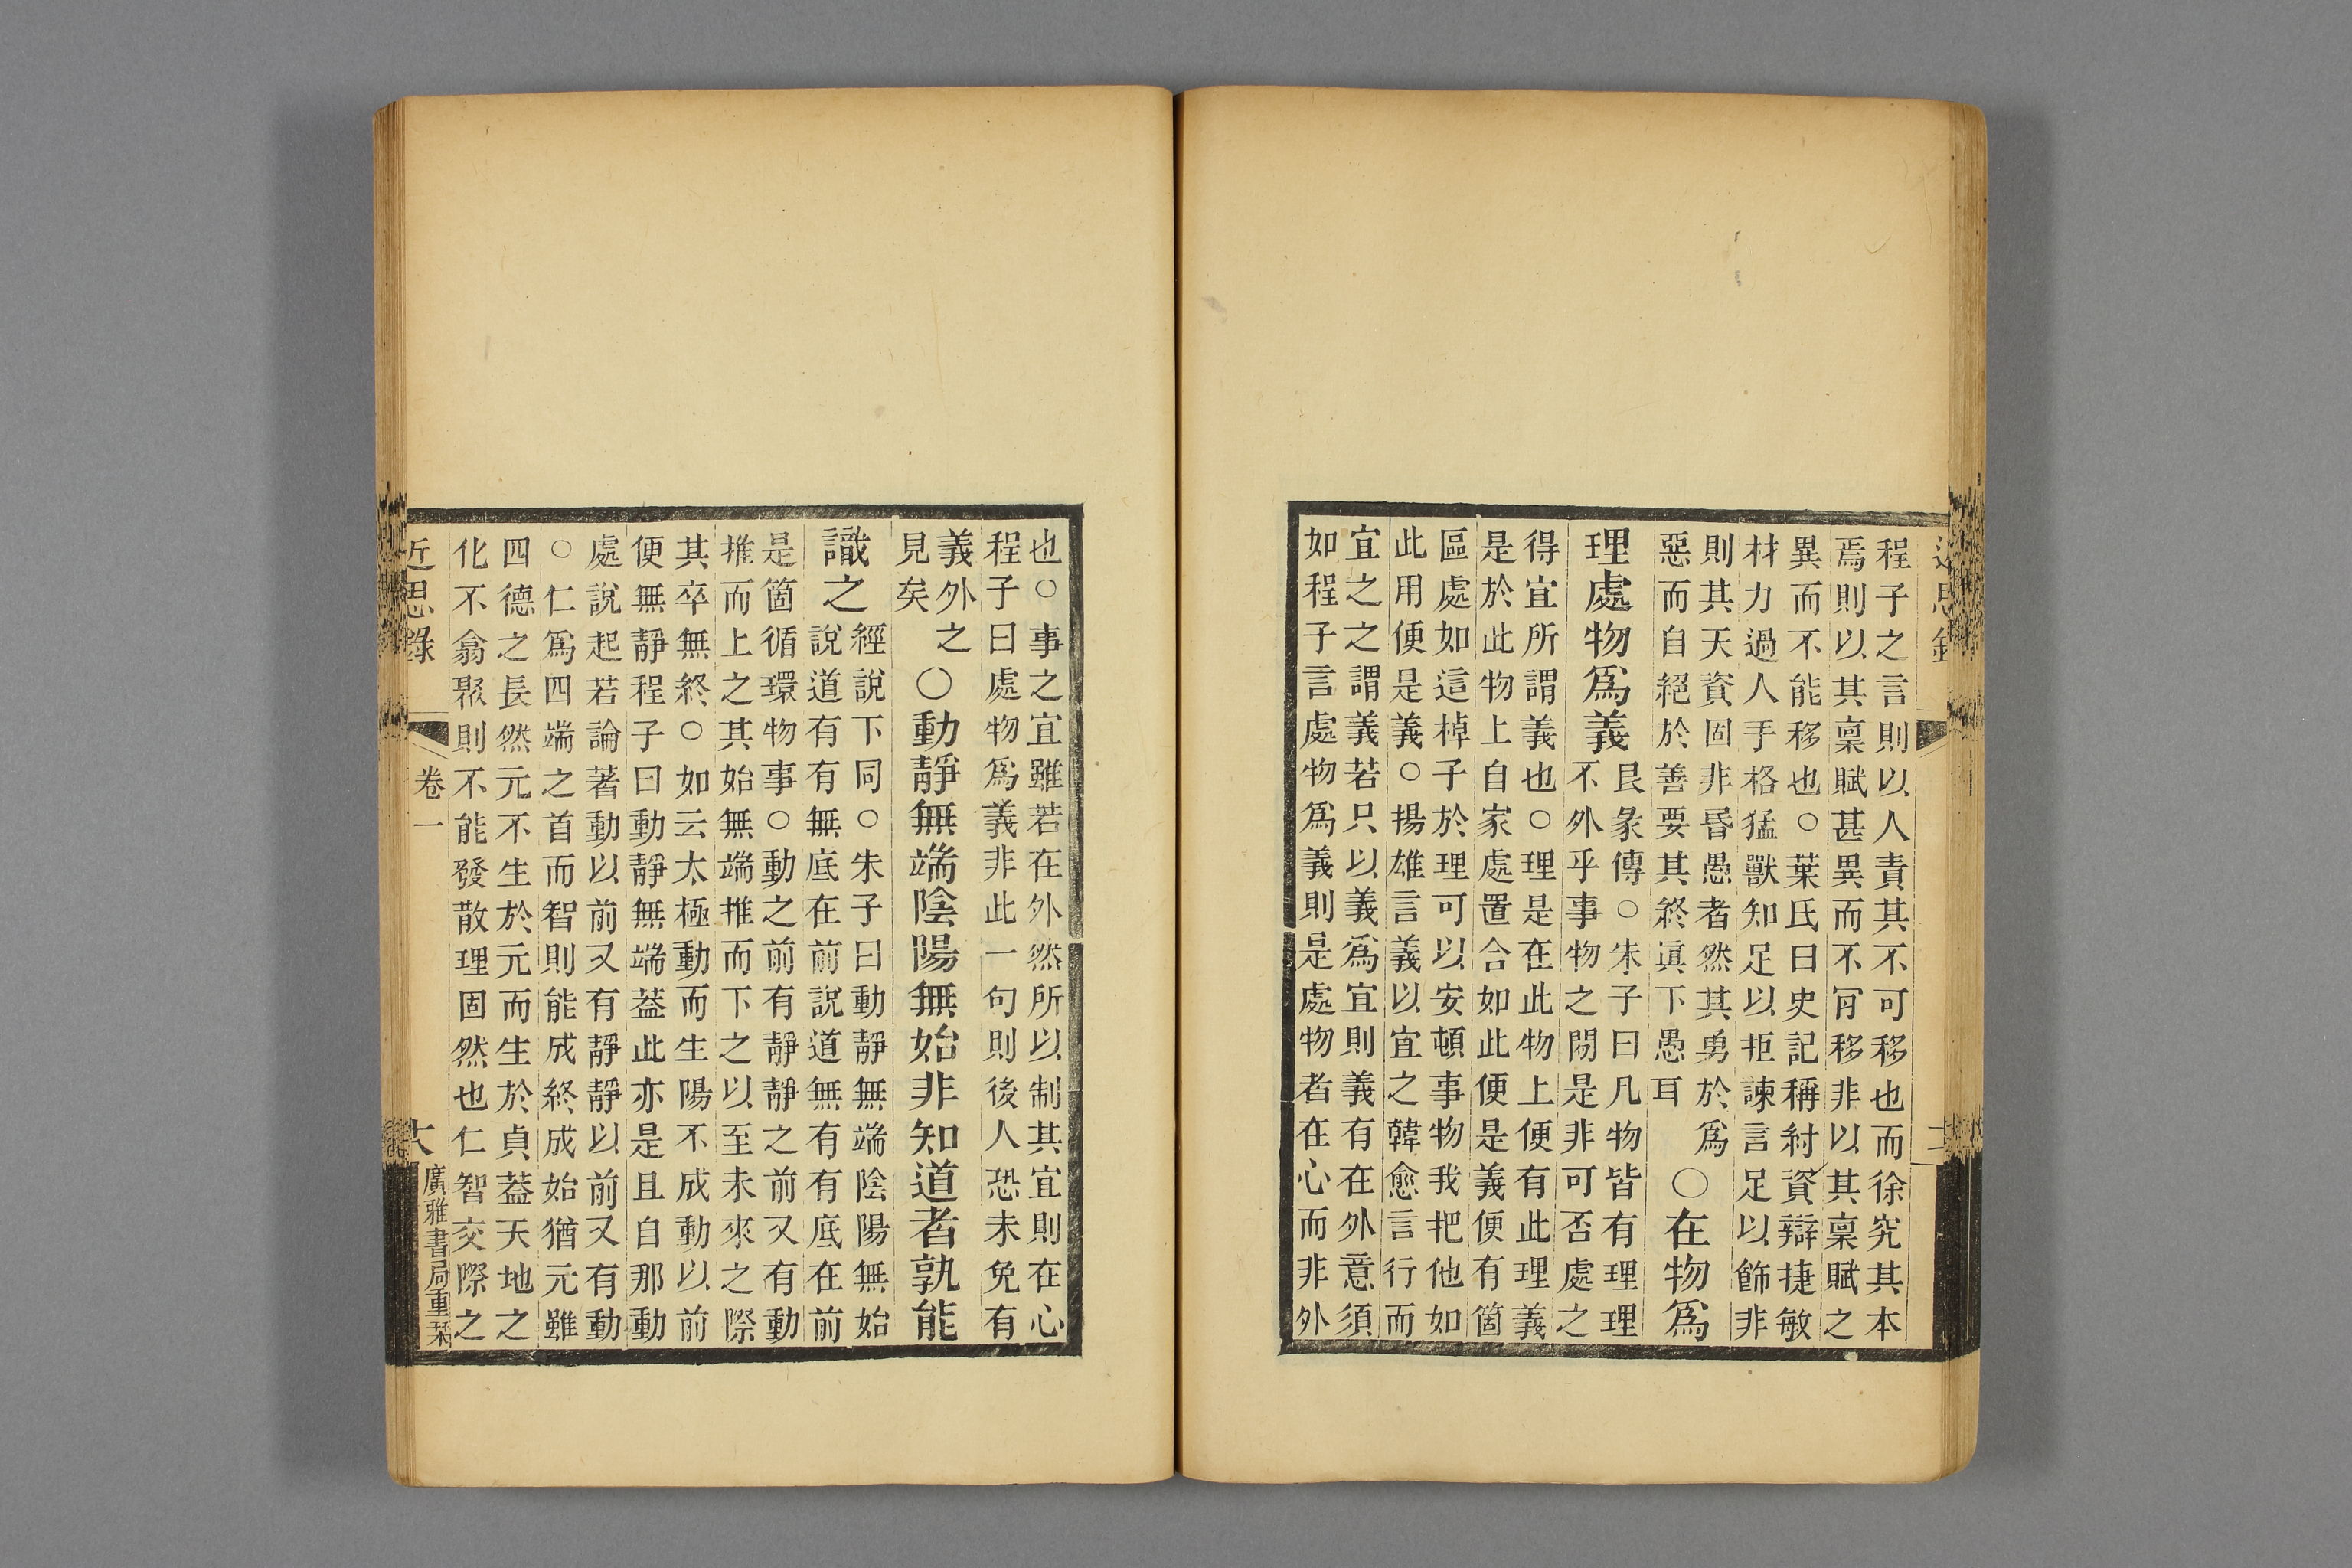 程子之言則以人責其不可移也而徐究其本
焉則以其稟賦甚異而不肎移非以其稟賦之
異而不能移也○葉氏曰史記稱紂資辯捷敏
材力過人手格猛獸知足以拒諫言足以飾非
則其天資固非昬愚者然其勇於爲
惡而自絕於善要其終眞下愚耳
○在物爲
理處物爲義
艮彖傳○朱子曰凡物皆有理理
不外乎事物之閒是非可否處之
得宜所謂義也○理是在此物上便有此理義
是於此物上自家處置合如此便是義便有箇
區處如這棹子於理可以安頓事物我把他如
此用便是義○揚雄言義以宜之韓愈言行而
宜之之謂義若只以義爲宜則義有在外意須
如程子言處物爲義則是處物者在心而非外
也○事之宜雖若在外然所以制其宜則在心
程子曰處物爲義非此一句則後人恐未免有
義外之
見矣
○動靜無端陰陽無始非知道者孰能
識之
經說下同○朱子曰動靜無端陰陽無始
說道有有無底在前說道無有有底在前
是箇循環物事○動之前有靜靜之前又有動
推而上之其始無端推而下之以至未來之際
其卒無終○如云太極動而生陽不成動以前
便無靜程子曰動靜無端葢此亦是且自那動
處說起若論著動以前又有靜靜以前又有動
○仁爲四端之首而智則能成終成始猶元雖
四德之長然元不生於元而生於貞葢天地之
化不翕聚則不能發散理固然也仁智交際之
近思錄
卷一
廣雅書局重栞